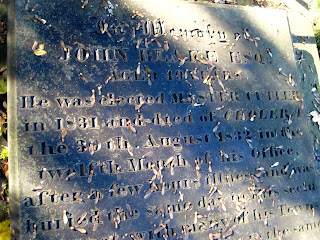 In Memory of
JOHN BLAKE ESQr
AGED
He was elected MASTER CUTLER
in 1831 and died of CHOLERA
the 30th August 1832 in the
twelfth Month of his Office,
after a few hours illness and was
buried the same day in this
of his
in the same